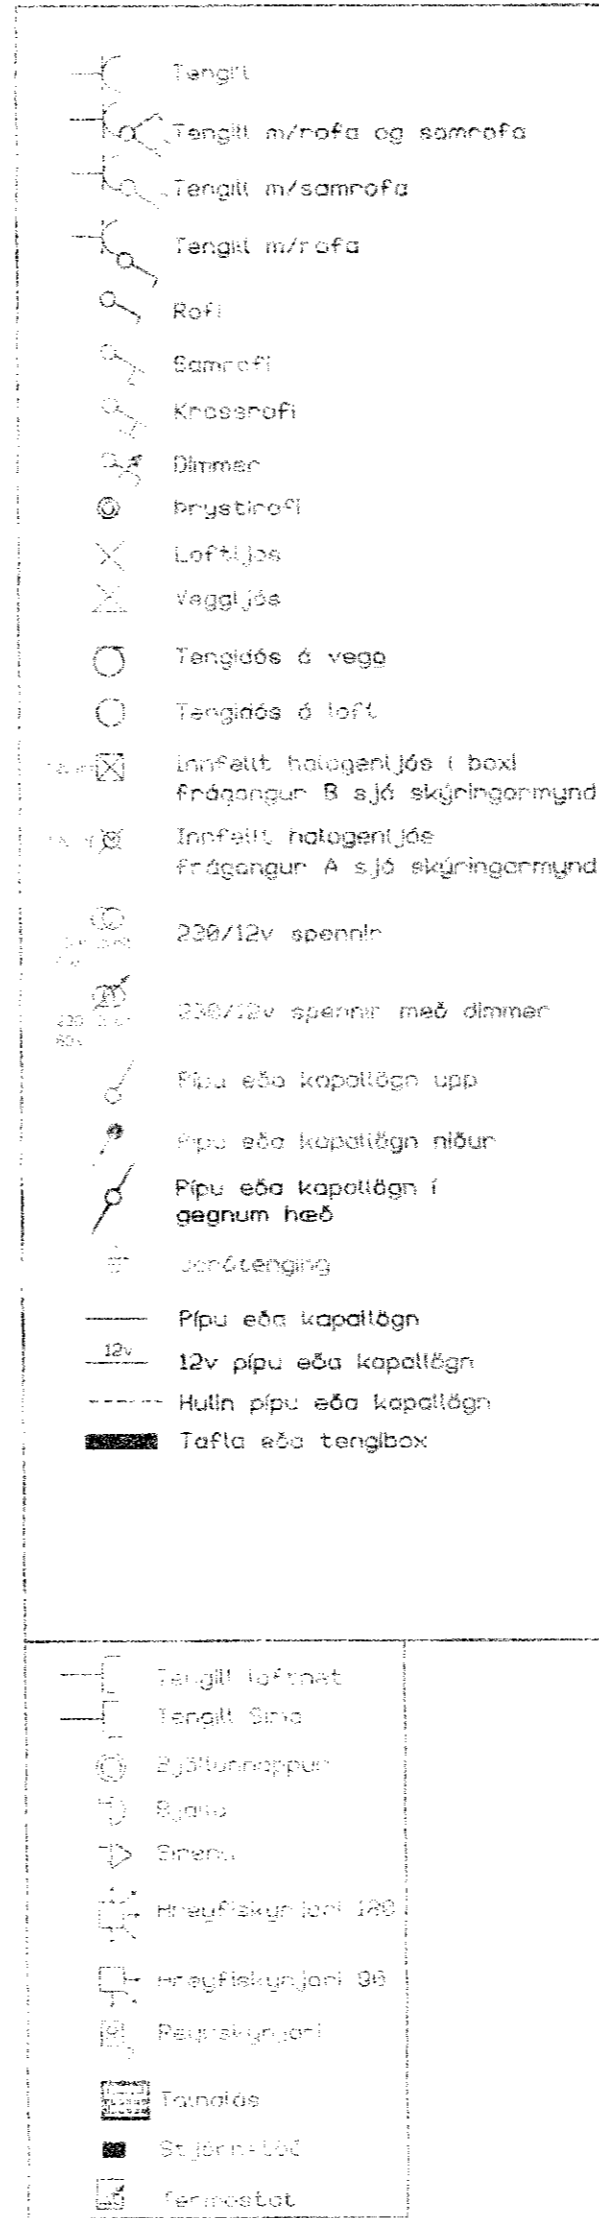 Tengill
Tengill m/rofa og samrofa
Tengill m/samrofa
Tengill m/rofa
Rofi
Samrofi
Krossrofi
Dimmer
Þrýstirofi
Loftljós
Veggljós
Tengidós á vegg
Tengidós á loft
Innfellt halogenljós í boxi
frágangur B sjá skýringarmynd
Innfellt halogenljós
frágangur A sjá skýringarmynd
230/12v spennir
230/12v spennir með dimmer
Pípu eða kapallögn upp
Pípu eða kapallögn niður
Pípu eða kapallögn í
gegnum hæð
Jarðtenging
Pípu eða kapallögn
12v
12v pípu eða kapallögn
Hulin pípu eða kapallögn
Tafla eða tengibox
Tengill loftnet
Tengill Síma
Bjölluhnappur
Bjalla
Sírena
Hreyfiskynjari 180
Hreyfiskynjari 90
Reykskynjari
Talnalás
Stjórnstöð
Termostat